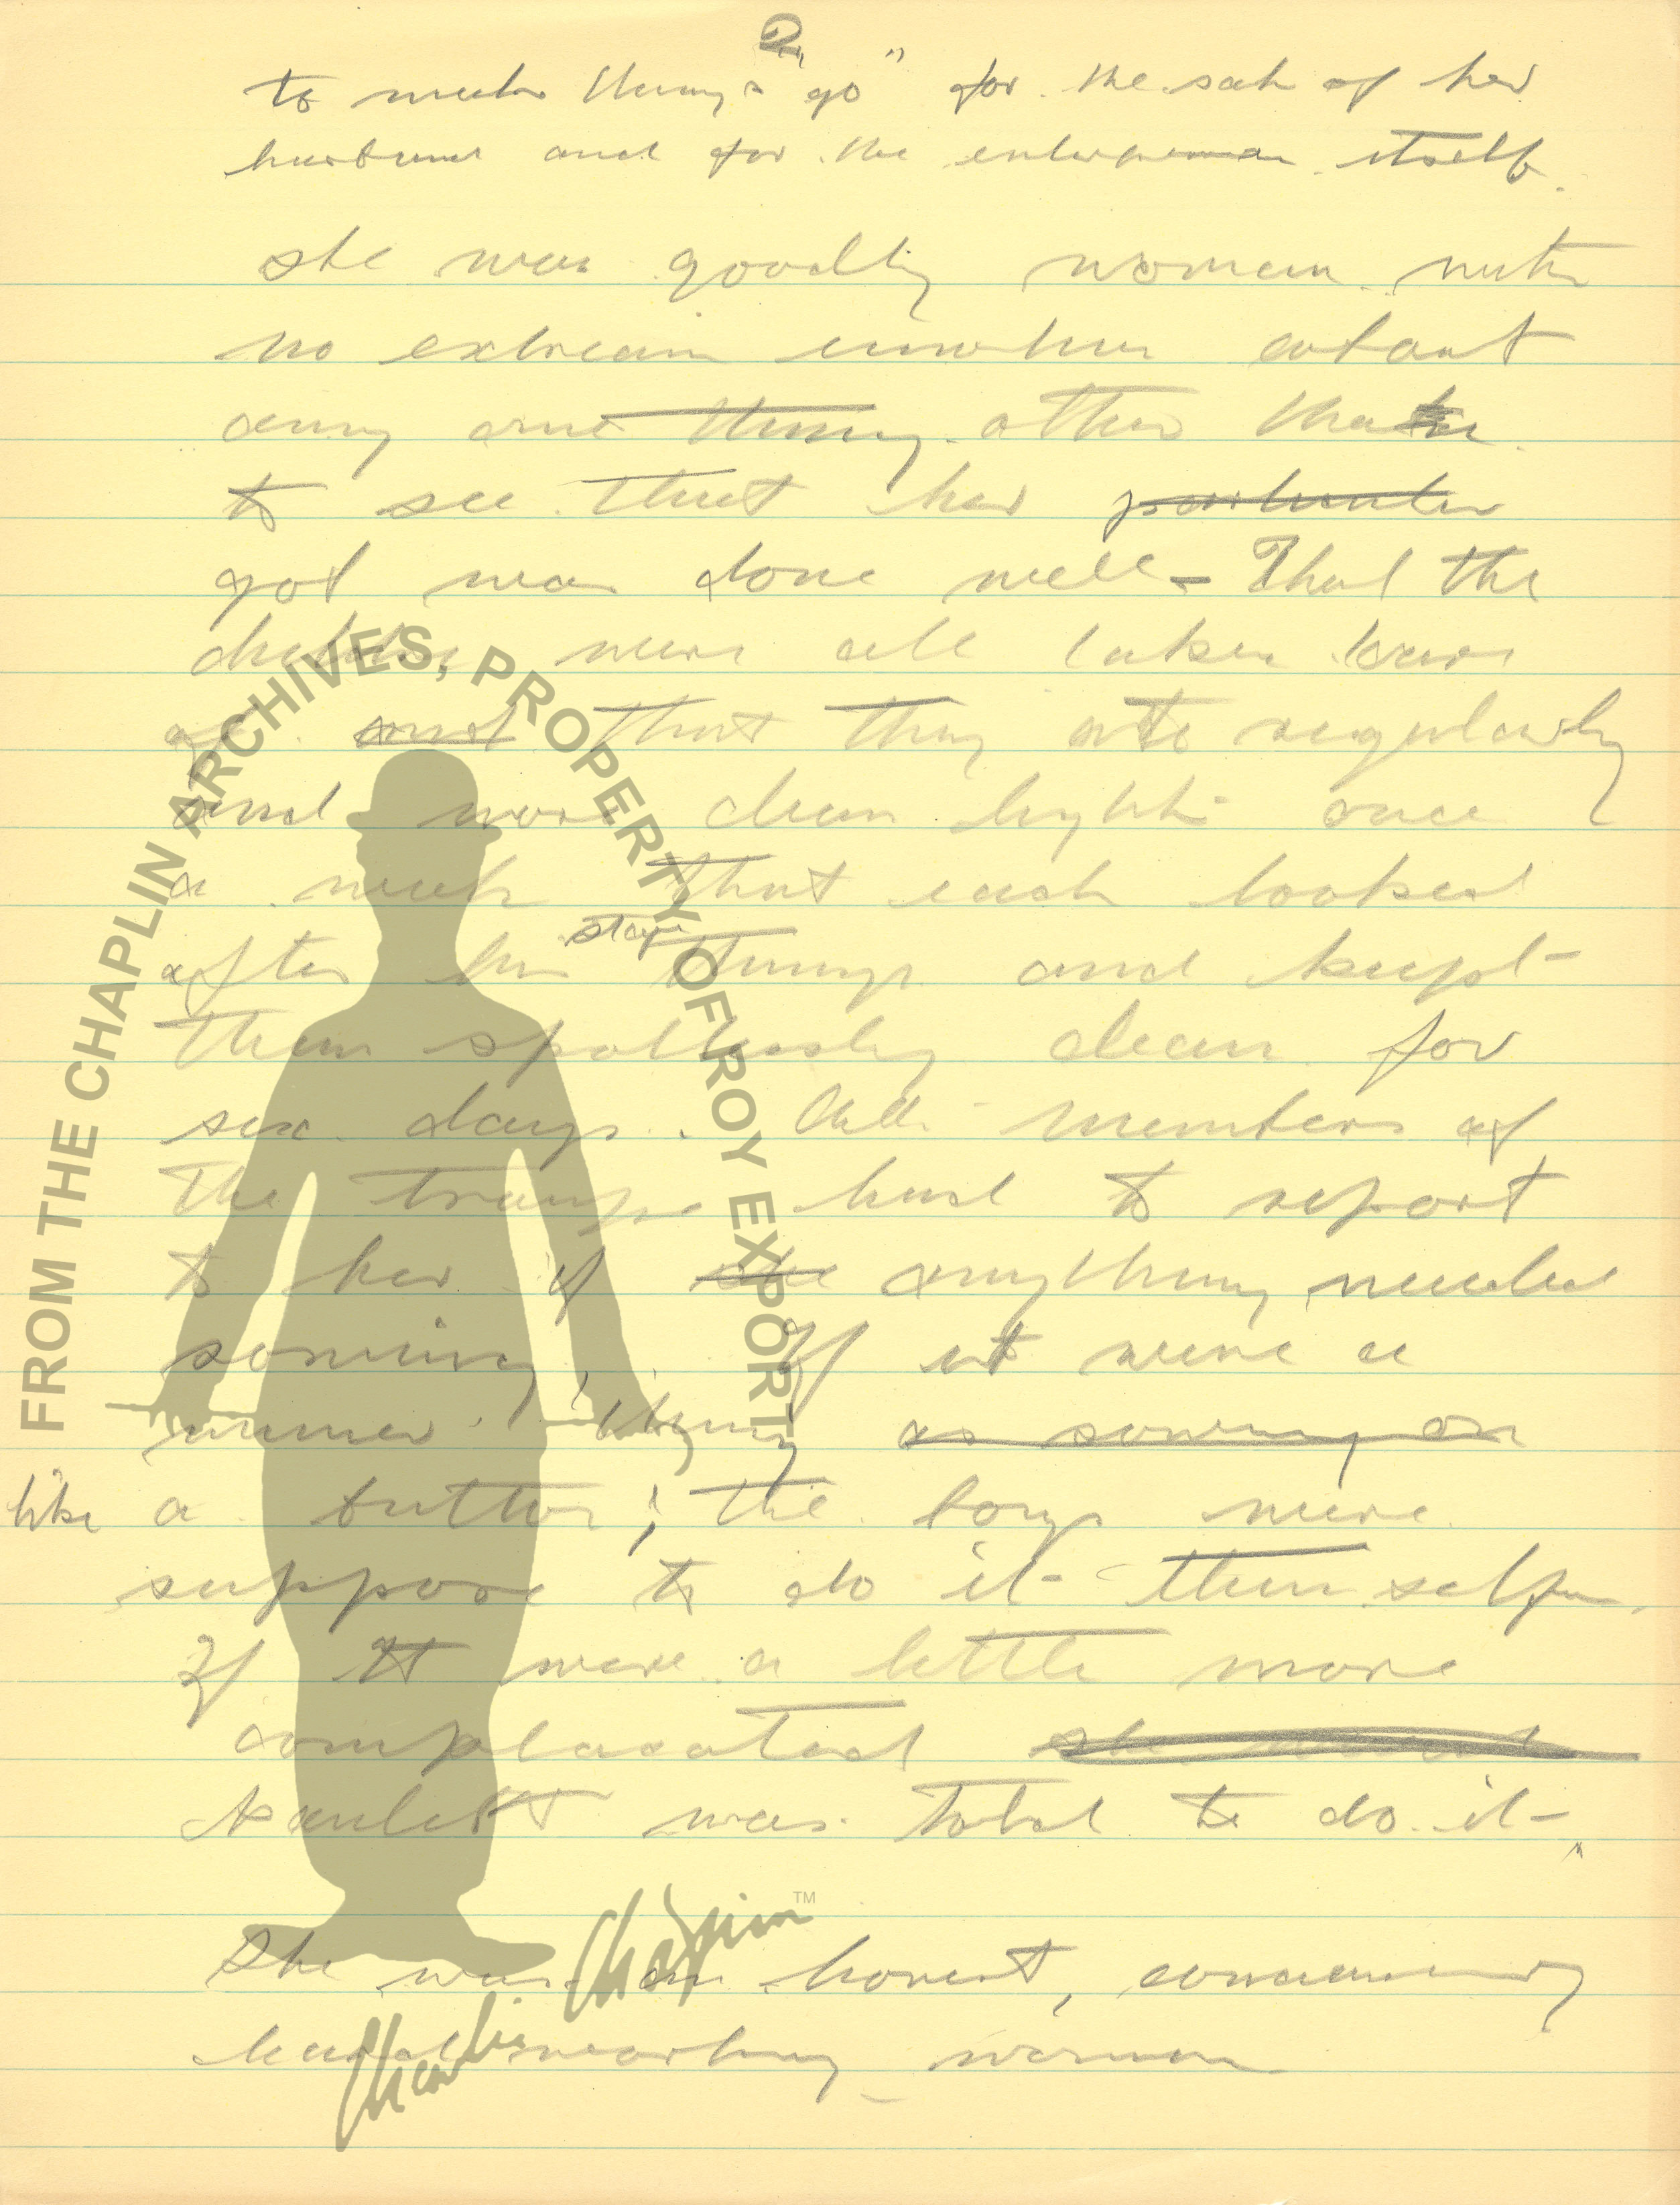 2
to make things "go" for the sake of her
husband and for the enterprise itself.
she was goodly woman with
no extream emotion about
any one thing other than
to see that her particular
got was done well - That the
children were all taken care
of and that they ate regularly
and wore clean tights once
a week that each looked
stage
after his things and kept
them spotlessly clean for
six days. All members of
the troupe had to report
to her if she anything needed
sowing, If it were a
minor thing as sowing on
like a button; the boys were
suppose to do it themselfs.
If it were a little more
complacated she
was told to do it
She was an honest,
hard working woman
FROM THE CHAPLIN ARCHIVES, PROPERTY OF ROY EXPORT
Charlie Chaplin TM